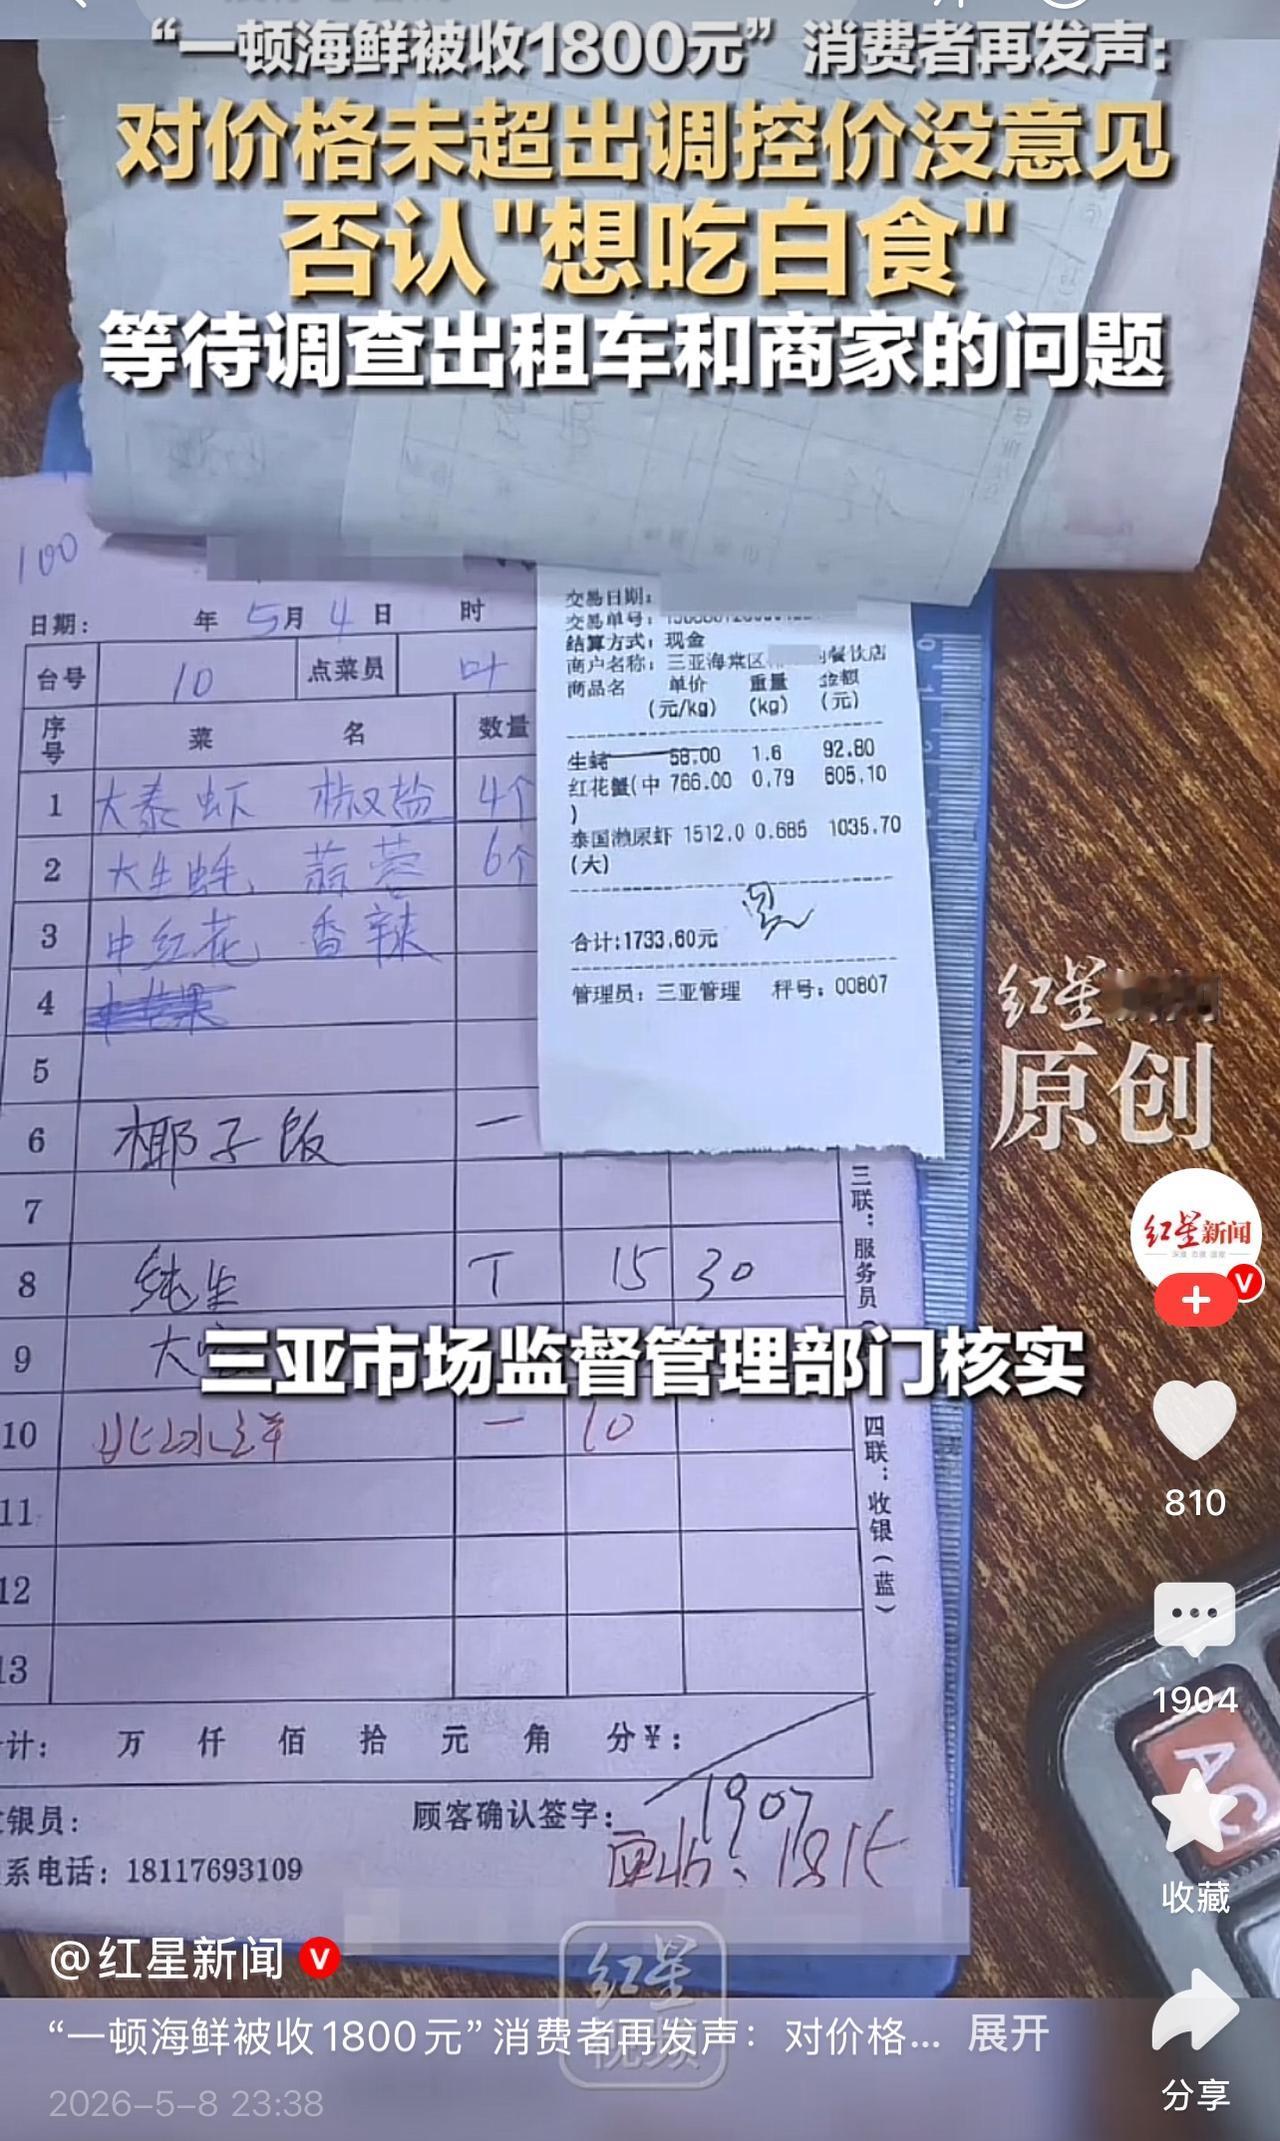 “一顿海鲜被收1800元”消费者再发声:
对价格未超出调控价没意见
否认"想吃白食"
等待调查出租车和商家的问题
100
日期: 年 5月 4日 时
台号 10 点菜员 叶
序号 菜 名 数量
1 大泰虾 椒盐 4个
2 大生蚝 蒜蓉 6个
3 中红花 香辣
4
5
6 椰子饭 一
7
8 纯生 T 15 30
9 大
10 北冰洋 一 10
11
12
13
计: 万 仟 佰 拾 元 角 分¥:
银员:
顾客确认签字:
1907
实收: 1815
系电话: 18117693109
三联:服务员
四联:收银(蓝)
交易日期:
交易单号:
结算方式: 现金
商户名称: 三亚海棠区 餐饮店
商品名 单价 重量 金额
(元/kg) (kg) (元)
生蚝 58.00 1.6 92.80
红花蟹(中 766.00 0.79 605.10
)
泰国濑尿虾 1512.0 0.685 1035.70
(大)
合计:1733.60元
管理员: 三亚管理 秤号: 00807
红星
原创
红星新闻
三亚市场监督管理部门核实
810
1904
AC
收藏
分享
@红星新闻
红星
视频
“一顿海鲜被收1800元”消费者再发声：对价格... 展开
2026-5-8 23:38